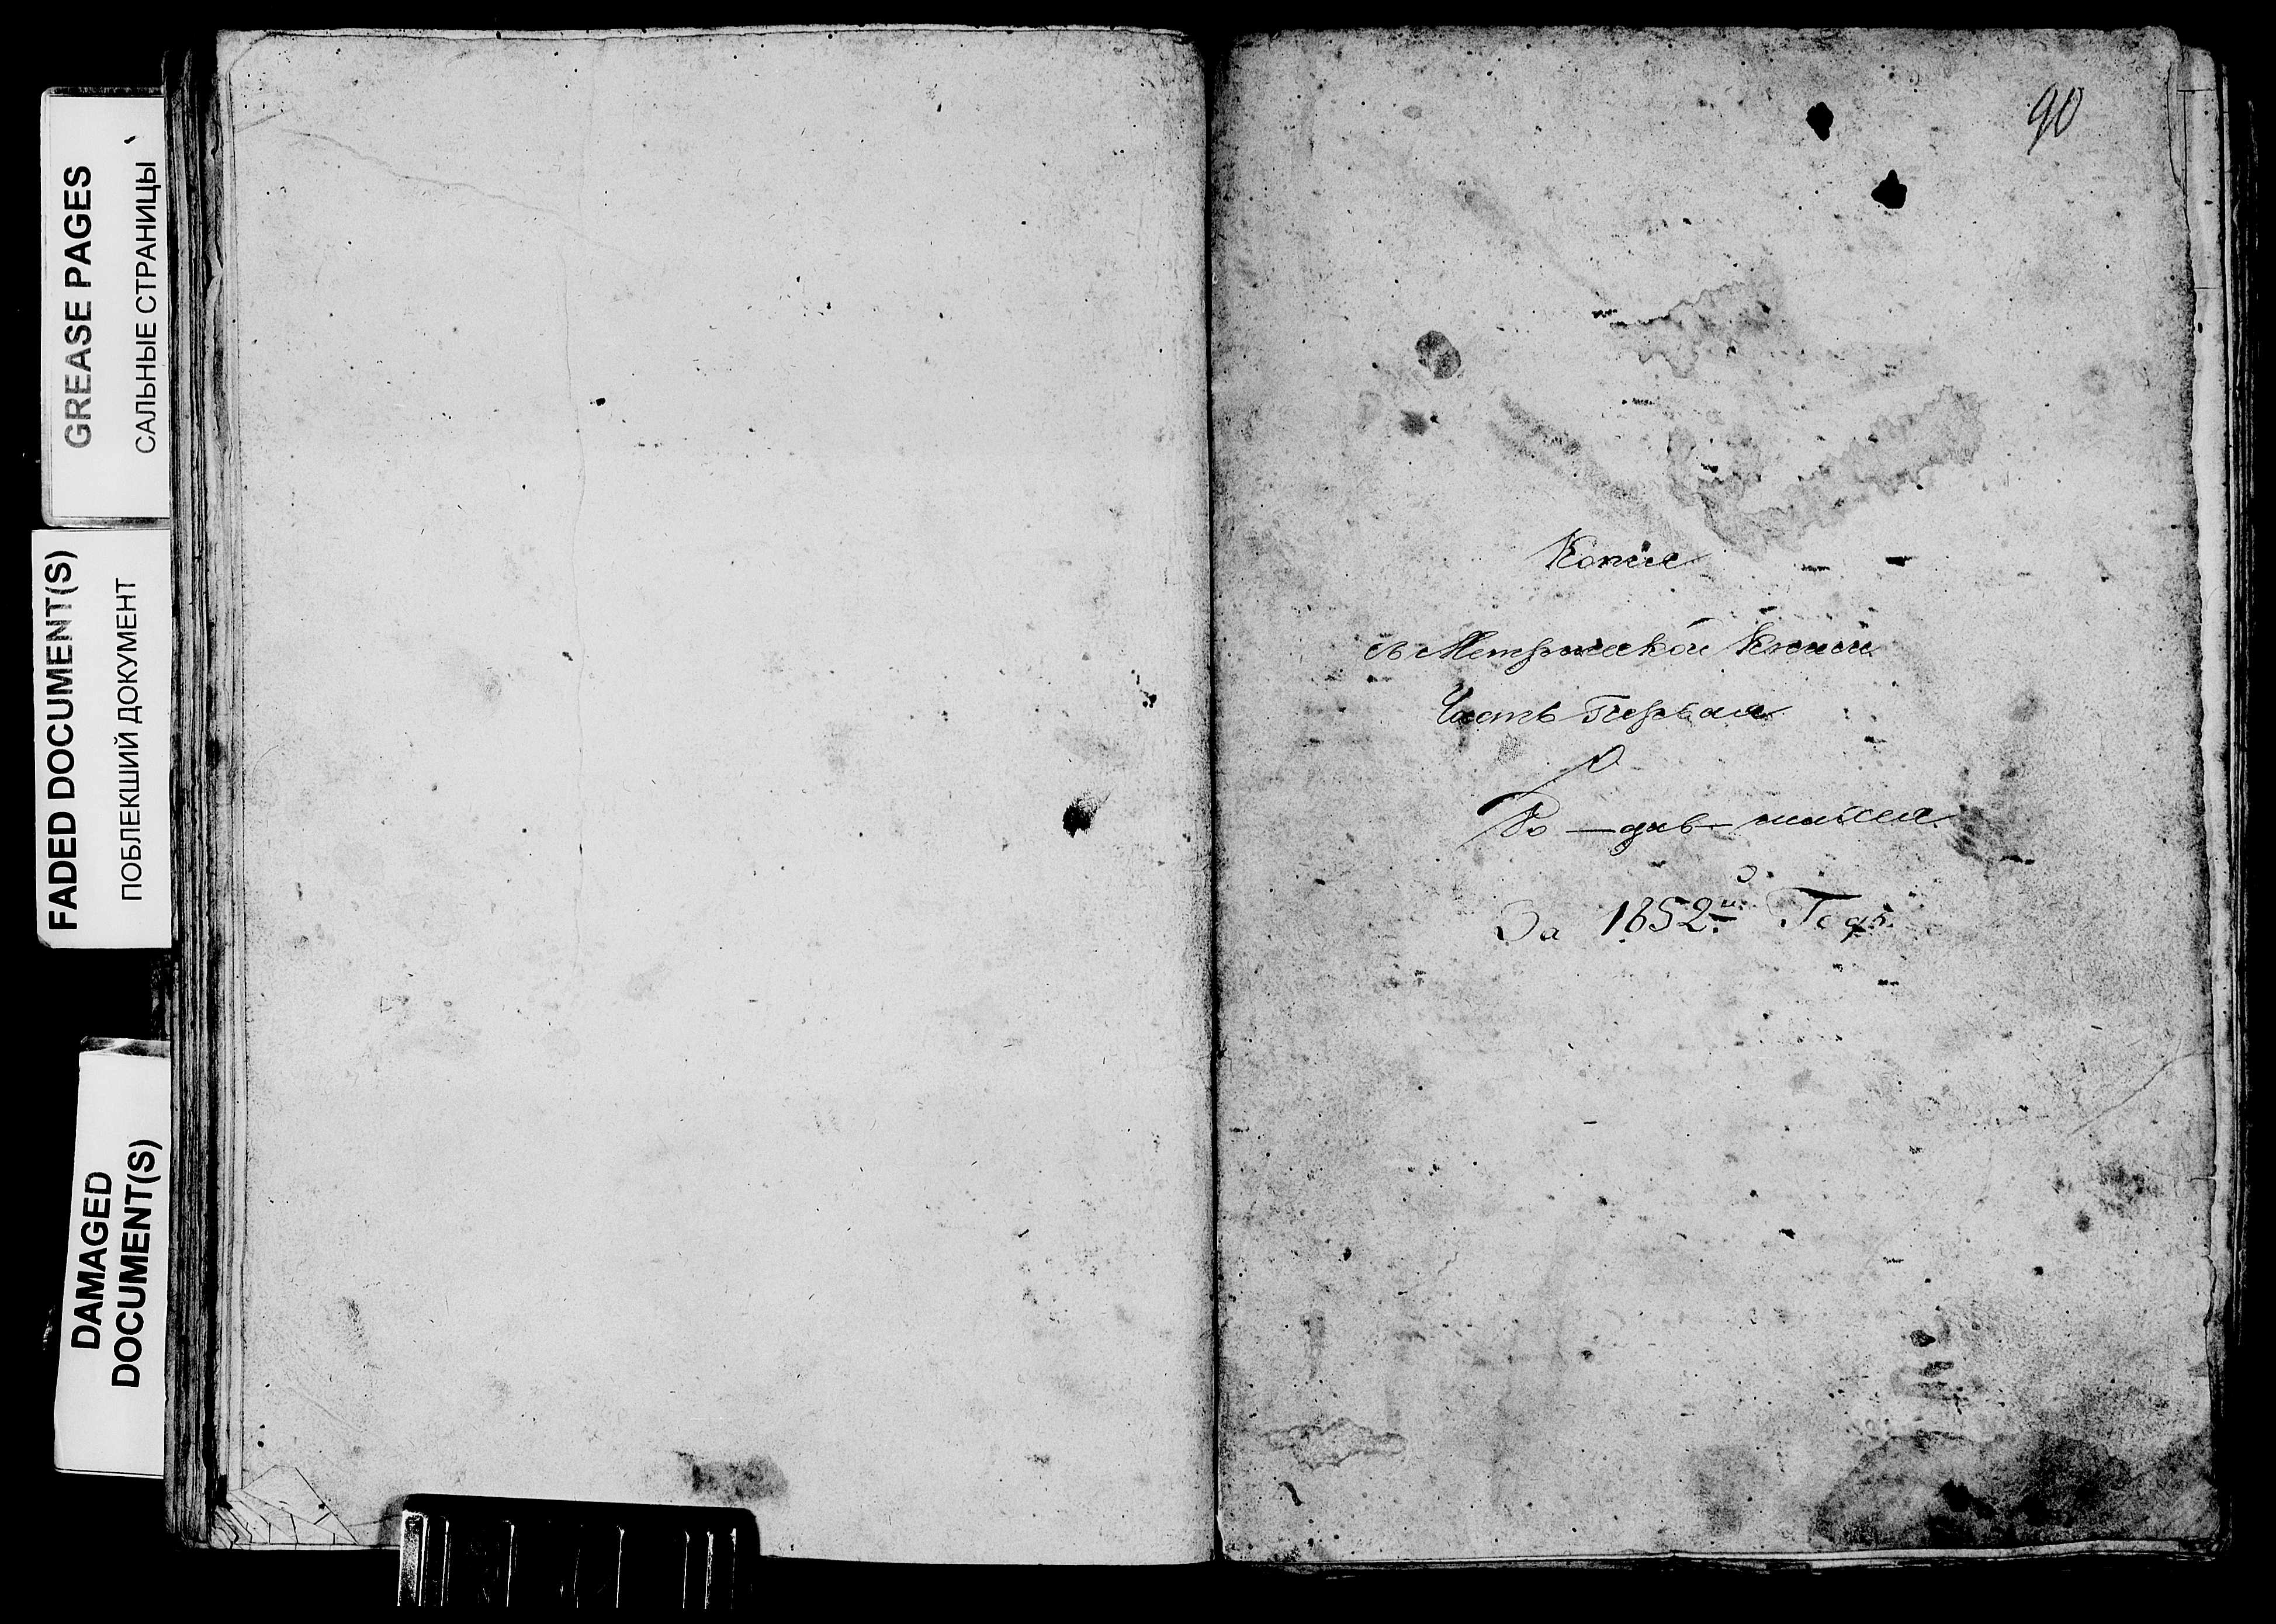 GREASE PAGES
САЛЬНЫЕ СТРАНИЦЫ
FADED DOCUMENT(S)
ПОБЛЕКШИЙ ДОКУМЕНТ
DAMAGED
DOCUMENT(S)
90
Копія
съ Метрической Книги
Часть Первая
О
Ро — див — шихся
За 1852й Годъ